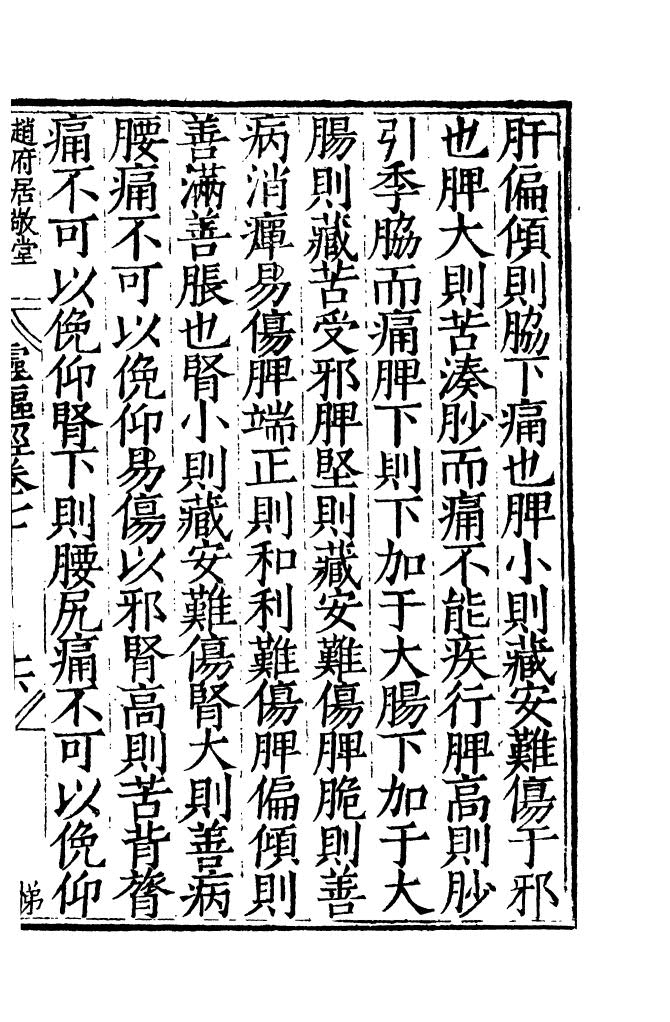 肝偏傾則脇下痛也脾小則藏安難傷于邪
也脾大則苦湊䏚而痛不能疾行脾高則䏚
引季脇而痛脾下則下加于大腸下加于大
腸則藏苦受邪脾堅則藏安難傷脾脆則善
病消癉易傷脾端正則和利難傷脾偏傾則
善滿善脹也腎小則藏安難傷腎大則善病
腰痛不可以俛仰易傷以邪腎高則苦背膂
痛不可以俛仰腎下則腰尻痛不可以俛仰
趙府居敬堂 靈樞經卷七 六 悌